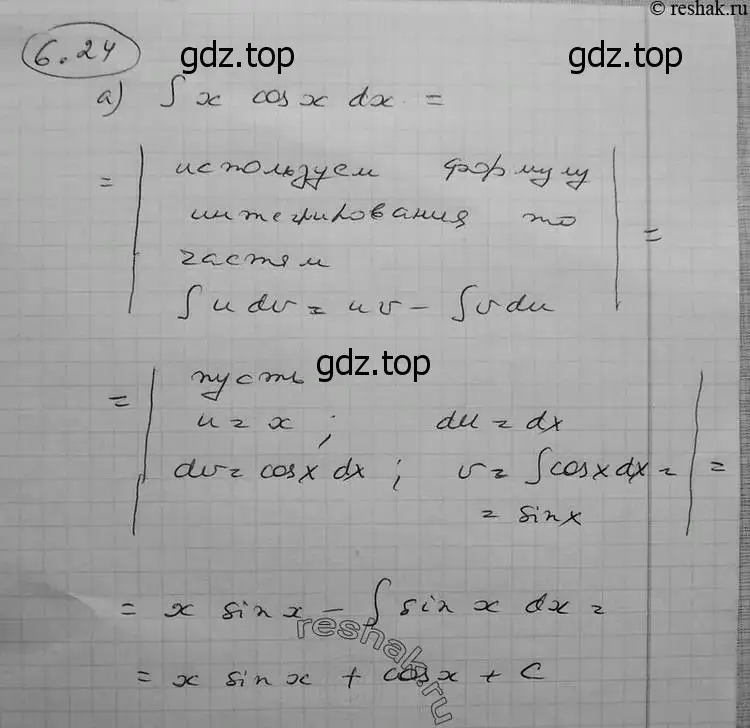 © reshak.ru
6.24
gdz.top gdz.top
а) ∫ x cos x dx =
= | используем формулу
интегрирования по
частям
∫ u dv = uv - ∫ v du | =
= | пусть gdz.top
u = x ; du = dx
dv = cosx dx ; v = ∫ cosx dx =
= sinx | =
= x sinx - ∫ sinx dx =
reshak.ru
= x sinx + cosx + C